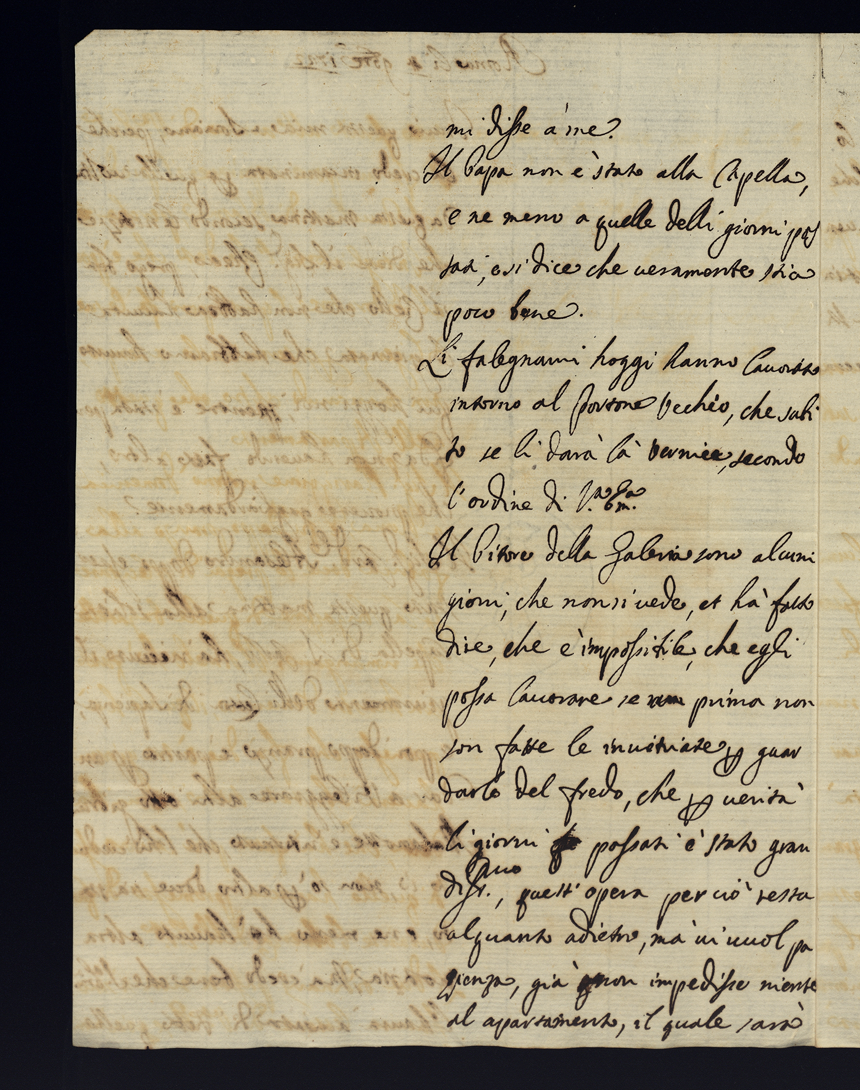 mi disse à me.
Il Papa non è stato alla Capella,
e ne meno a quelle delli giorni pas
sati, e si dice che veramente stia
poco bene.
Li falegnami hoggi hanno lavorato
intorno al portone vechio, che subi
to se li darà la vernice, secondo
l'ordine di V.ra Em.za
Il Pitore della Galeria sono alcuni
giorni, che non si vede, et hà fatto
dire, che è impossibile, che egli
possa lavorare se prima non
son fatte le invitriate per guar
darlo del fredo, che per verità
li giorni passati è stato gran
diss.imo, quest'opera perciò resta
alquanto adietro, mà vi vuol pa
zienza, già non impedisse niente
al apartamento, il quale sarà